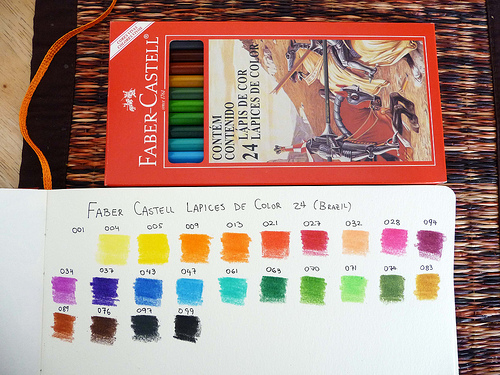 FABER-CASTELL
since 1761
CONTÉM
CONTENIDO
24 LAPIS DE COR
LAPICES DE COLOR
FABER CASTELL LAPICES DE COLOR 24 (BRAZIL)
001 004 005 009 013 021 027 032 028 094
034 037 043 047 061 063 070 071 074 083
089 076 097 099